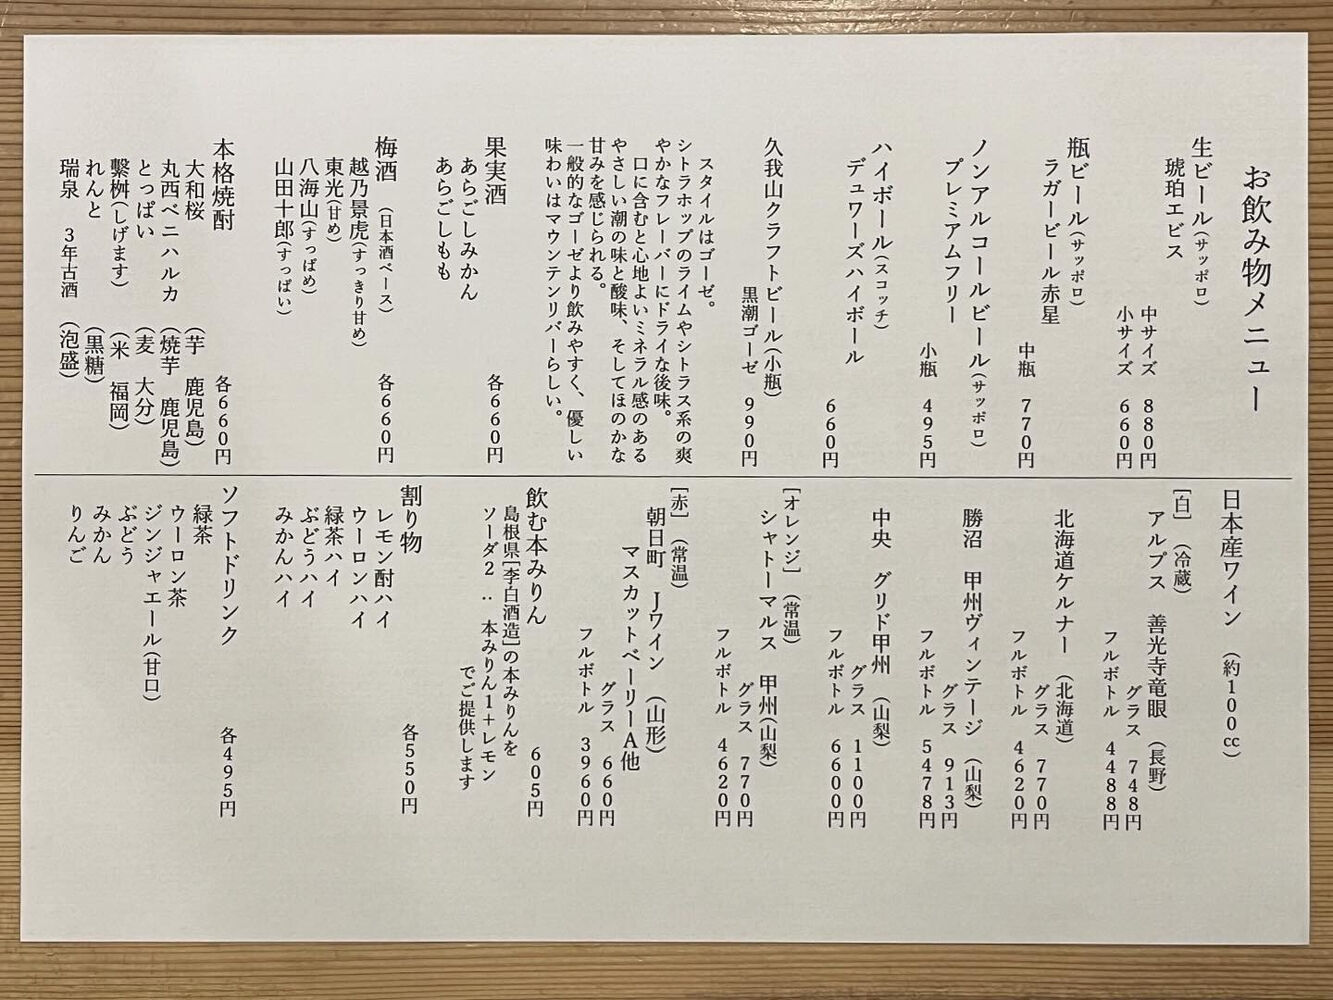 お飲み物メニュー
生ビール(サッポロ)
琥珀エビス
中サイズ 880円
小サイズ 660円
瓶ビール(サッポロ)
ラガービール赤星
中瓶 770円
ノンアルコールビール(サッポロ)
プレミアムフリー
小瓶 495円
ハイボール(スコッチ)
デュワーズハイボール
660円
久我山クラフトビール(小瓶)
黒潮ゴーゼ 990円
スタイルはゴーゼ。
シトラホップのライムやシトラス系の爽
やかなフレーバーにドライな後味。
口に含むと心地よいミネラル感のある
やさしい潮の味と酸味、そしてほのかな
甘みを感じられる。
一般的なゴーゼより飲みやすく、優しい
味わいはマウンテンリバーらしい。
果実酒 各660円
あらごしみかん
あらごしもも
梅酒 (日本酒ベース) 各660円
越乃景虎(すっきり甘め)
東光(甘め)
八海山(すっぱめ)
山田十郎(すっぱい)
本格焼酎 各660円
大和桜 (芋 鹿児島)
丸西ベニハルカ (焼芋 鹿児島)
とっぱい (麦 大分)
繋桝(しげます) (米 福岡)
れんと (黒糖)
瑞泉 3年古酒 (泡盛)
日本産ワイン (約100cc)
[白] (冷蔵)
アルプス 善光寺竜眼 (長野)
グラス 748円
フルボトル 4488円
北海道ケルナー (北海道)
グラス 770円
フルボトル 4620円
勝沼 甲州ヴィンテージ (山梨)
グラス 913円
フルボトル 5478円
中央 グリド甲州 (山梨)
グラス 1100円
フルボトル 6600円
[オレンジ] (常温)
シャトーマルス 甲州(山梨)
グラス 770円
フルボトル 4620円
[赤] (常温)
朝日町 Jワイン (山形)
マスカットベーリーA他
グラス 660円
フルボトル 3960円
飲む本みりん 605円
島根県[李白酒造]の本みりんを
ソーダ2:本みりん1+レモン
でご提供します
割り物 各550円
レモン酎ハイ
ウーロンハイ
緑茶ハイ
ぶどうハイ
みかんハイ
ソフトドリンク 各495円
緑茶
ウーロン茶
ジンジャエール(甘口)
ぶどう
みかん
りんご